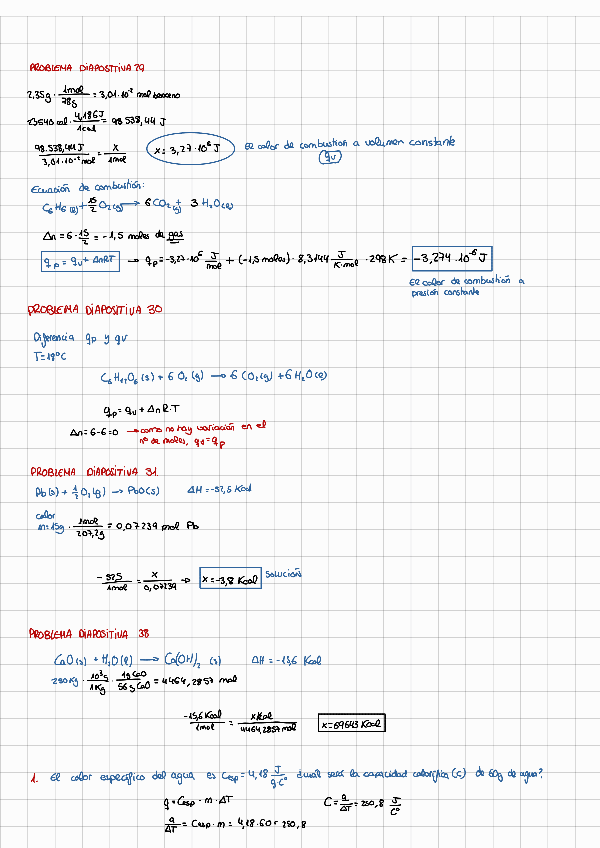 PROBLEMA DIAPOSITIVA 29
2,35g · 1mol/78g = 3,01·10⁻² mol benceno
23540 cal · 4,186J/1cal = 98 538,44 J
98.538,44J/3,01·10⁻² mol = x/1mol x = 3,27·10⁶ J El calor de combustión a volumen constante
(qv)
Ecuación de combustión:
C₆H₆(l) + 15/2 O₂(g) → 6 CO₂(g) + 3 H₂O(l)
Δn = 6 - 15/2 = -1,5 moles de gas
qp = qv + ΔnRT → qp = -3,27·10⁶ J/mol + (-1,5 moles) · 8,3144 J/K·mol · 298K = -3,274·10⁻⁶ J
El calor de combustión a
presión constante
PROBLEMA DIAPOSITIVA 30
Diferencia qp y qv
T=18°C
C₆H₁₂O₆(s) + 6 O₂(g) → 6 CO₂(g) + 6 H₂O(l)
qp = qv + Δn R·T
Δn = 6-6 = 0 → como no hay variación en el
nº de moles, qv = qp
PROBLEMA DIAPOSITIVA 31
Pb(s) + 1/2 O₂(g) → PbO(s) ΔH = -52,5 Kcal
calor
m = 15g · 1mol/207,2g = 0,07239 mol Pb
-52,5/1mol = x/0,07239 → x = -3,8 Kcal Solución
PROBLEMA DIAPOSITIVA 38
CaO(s) + H₂O(l) → Ca(OH)₂ (s) ΔH = -15,6 Kcal
250Kg · 10³g/1Kg · 1g CaO/56g CaO = 4464,2857 mol
-15,6 Kcal/1mol = x Kcal/4464,2857 mol x = 69643 Kcal
1. El calor específico del agua es Cesp = 4,18 J/g·C° ¿cual será la capacidad calorífica (C) de 60g de agua?
q = Cesp · m · ΔT C = q/ΔT = 250,8 J/C°
q/ΔT = Cesp · m = 4,18 · 60 = 250,8